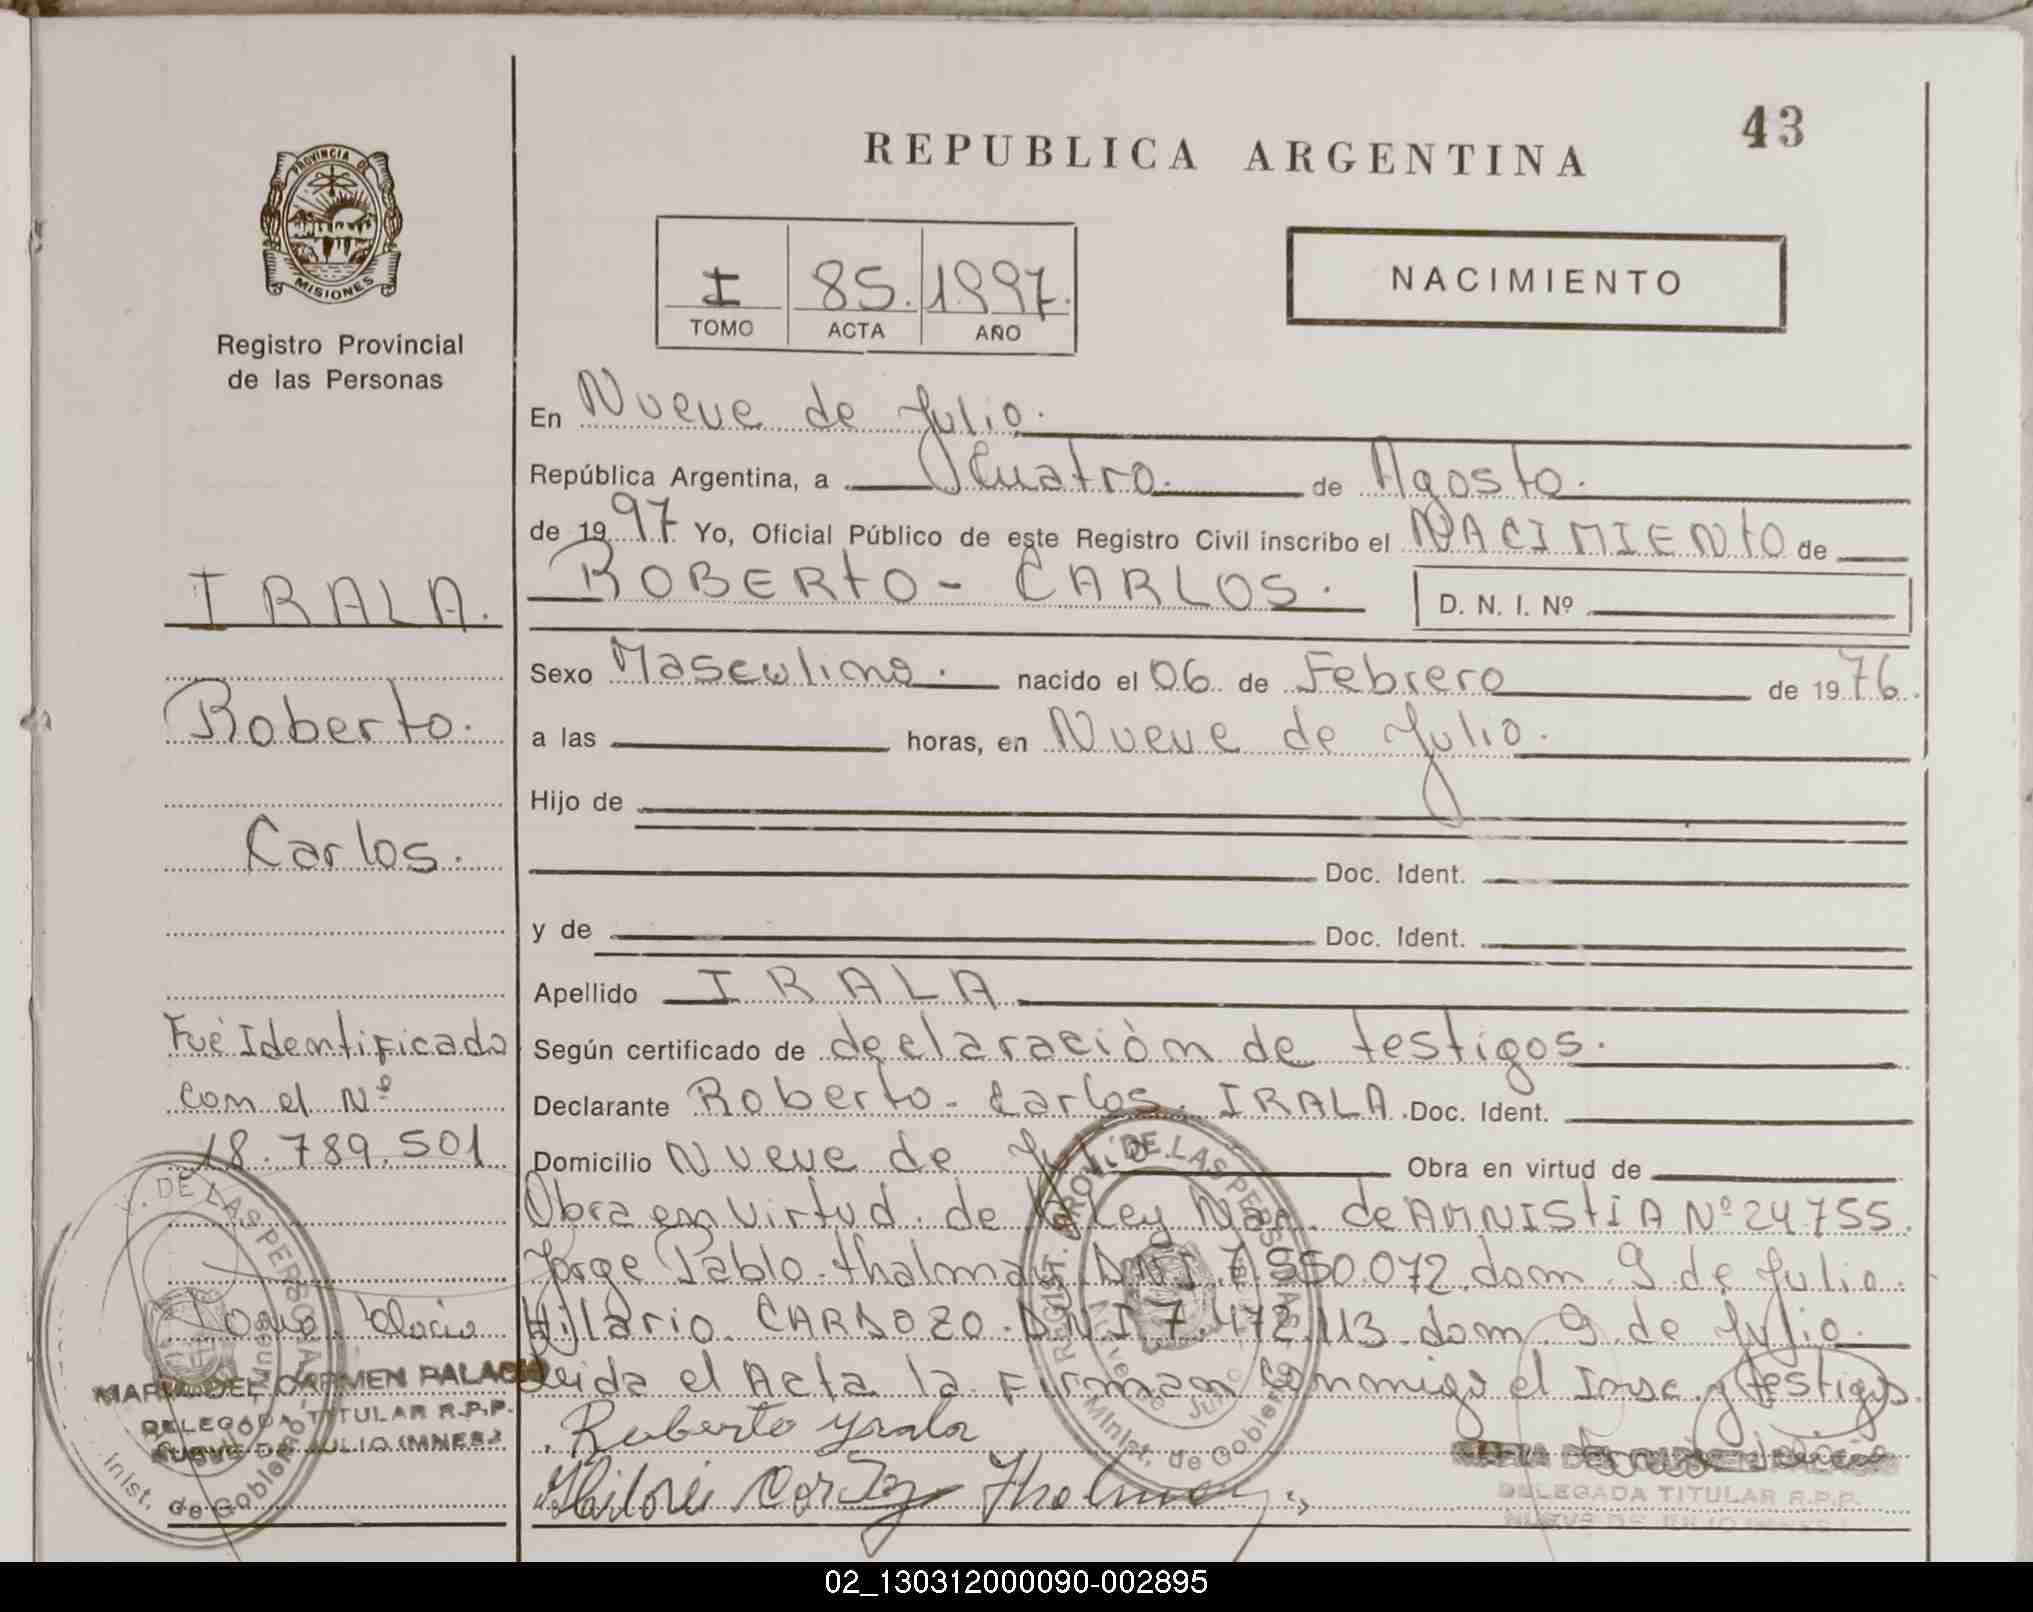 43
REPUBLICA ARGENTINA
PROVINCIA DE
MISIONES
Registro Provincial
de las Personas
I 85. 1997.
TOMO ACTA AÑO
NACIMIENTO
En Nueve de Julio.
República Argentina, a Cuatro. de Agosto.
de 1997 Yo, Oficial Público de este Registro Civil inscribo el NACIMIENTO de
ROBERTO - CARLOS.
D. N. I. Nº
Sexo Masculino. nacido el 06 de Febrero de 1976.
a las horas, en Nueve de Julio.
Hijo de
Doc. Ident.
y de Doc. Ident.
Apellido IRALA
Según certificado de declaración de testigos.
Declarante Roberto - Carlos. IRALA. Doc. Ident.
Domicilio Nueve de Julio Obra en virtud de
Obra en virtud. de la Ley Nac. de AMNISTIA Nº 24755.
Jorge Pablo. thalmay DNI 7.550.072. dom. 9 de Julio.
Hilario. CARDOZO. DNI 7.472.113. dom. 9 de Julio.
Leida el Acta la Firman Conmigo el Insc. y testigos.
Roberto yrala
IRALA.
Roberto.
Carlos.
Fué Identificado
con el Nº
18.789.501
MARIA DEL CARMEN PALACIO
DELEGADA TITULAR R.P.P.
NUEVE DE JULIO (MNES.)
REGIST. PROV. DE LAS PERSONAS
Minist. de Gobierno
DELEGADA TITULAR R.P.P.
02_130312000090-002895